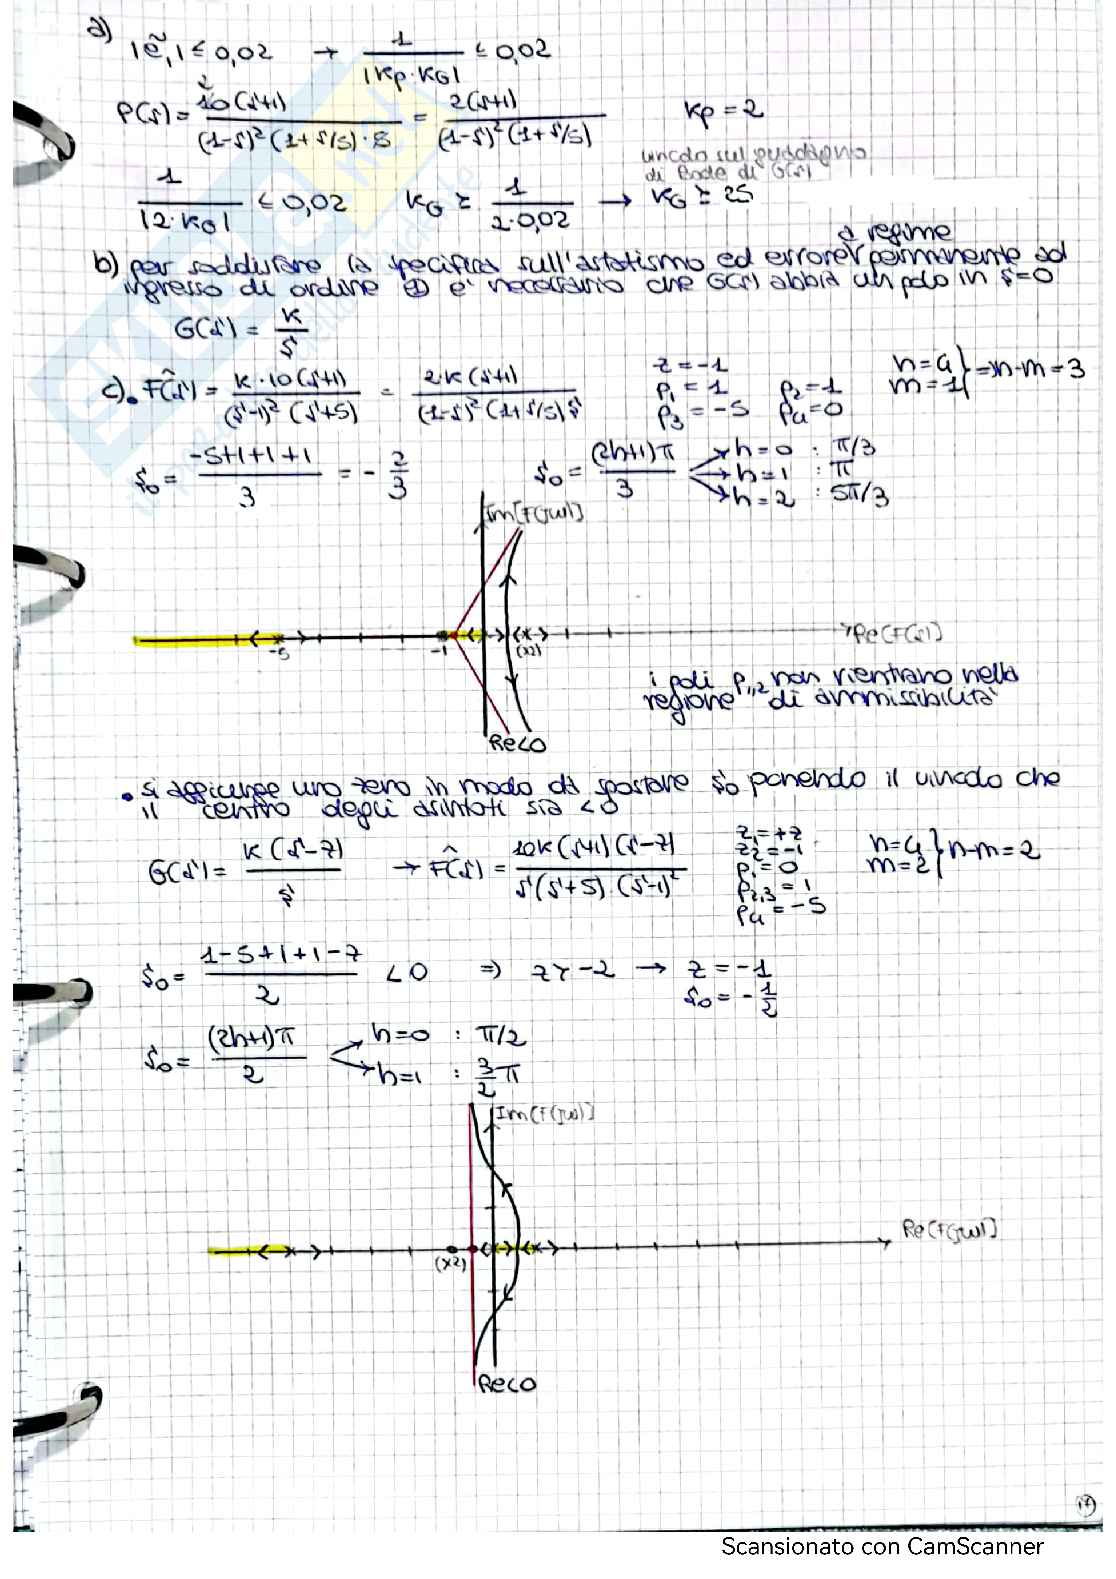 a) |ẽ₁| ≤ 0,02 → 1/|Kp·KG| ≤ 0,02
P(s) = 10(s+1)/((1-s)²(1+s/5)·5) = 2(s+1)/((1-s)²(1+s/5)) Kp = 2
vincolo sul guadagno
di Bode di G(s)
1/|2·KG| ≤ 0,02 KG ≥ 1/(2·0,02) → KG ≥ 25
a regime
b) per soddisfare la specifica sull'astatismo ed errore permanente ad
ingresso di ordine ① e' necessario che G(s) abbia un polo in s=0
G(s) = K/s
c). F̂(s) = K·10(s+1)/((s-1)²(s+5)) = 2K(s+1)/((1-s)²(1+s/5)s) z = -1 n=4
p₁ = 1 p₂ = 1 m=1 } ⇒ n-m = 3
p₃ = -5 p₄ = 0
s₀ = (-5+1+1+1)/3 = -2/3 s₀ = (2h+1)π/3 h=0 : π/3
h=1 : π
h=2 : 5π/3
Im[F(jw)]
-5 -1 (x2) Re(F(s))
i poli p₁,₂ non rientrano nella
regione di ammissibilità
Re<0
• si aggiunge uno zero in modo da spostare s₀ ponendo il vincolo che
il centro degli asintoti sia <0
G(s) = K(s-z)/s → F̂(s) = 10K(s+1)(s-z)/(s(s+5)(s-1)²) z₁ = +z n=4
z₂ = -1 m=2 } n-m=2
p₁ = 0
p₂,₃ = 1
p₄ = -5
s₀ = (1-5+1+1-z)/2 < 0 ⇒ z > -2 → z = -1
s₀ = -1/2
s₀ = (2h+1)π/2 h=0 : π/2
h=1 : 3/2 π
Im(F(jw)]
Re(F(jw)]
(x2)
Re<0
17
Scansionato con CamScanner